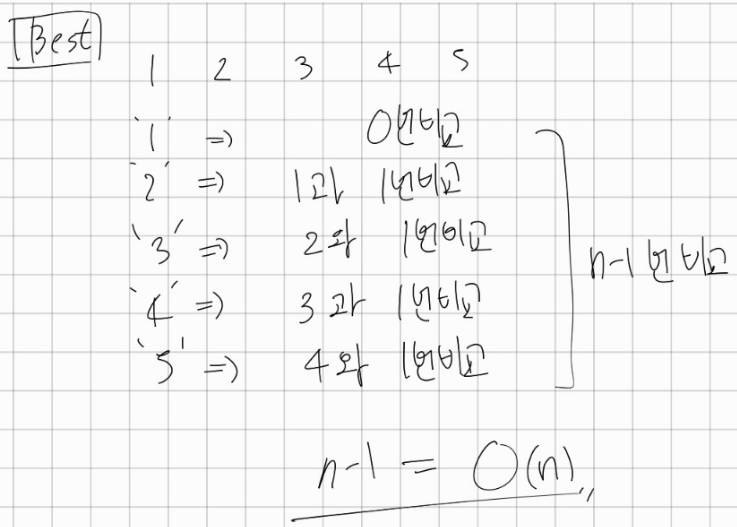 Best
1 2 3 4 5
'1' => 0번비교
'2' => 1과 1번비교
'3' => 2와 1번비교
'4' => 3과 1번비교
'5' => 4와 1번비교
n-1번 비교
n-1 = O(n)